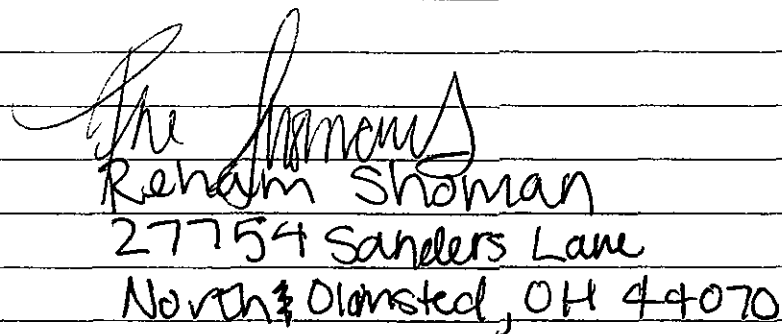 The Shomans
Reham Shoman
27754 Sanders Lane
North Olmsted, OH 44070